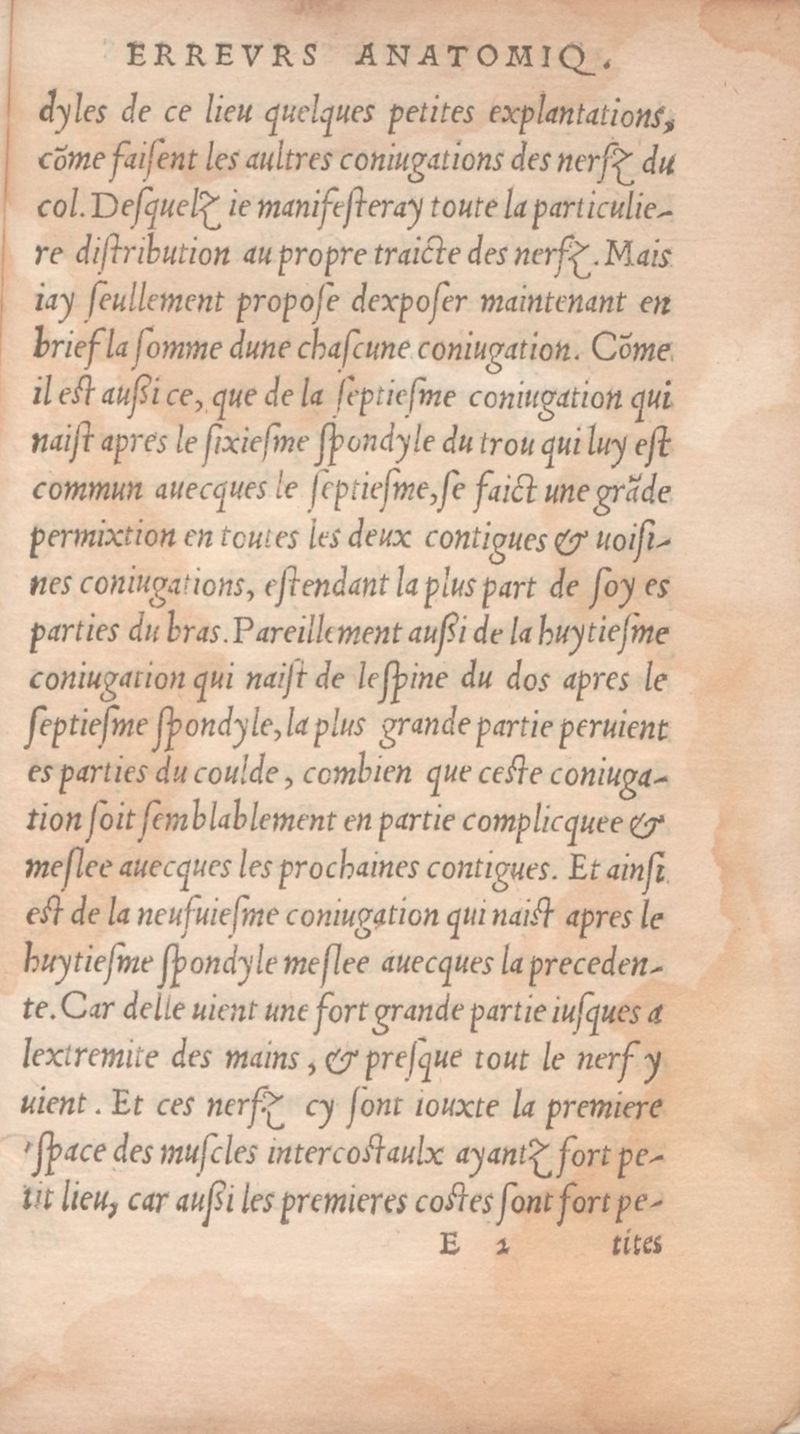 ERREVRS ANATOMIQ.
dyles de ce lieu quelques petites explantations,
cõme faiſent les aultres coniugations des nerfz du
col. Deſquelz ie manifeſteray toute la particulie-
re diſtribution au propre traicte des nerfz. Mais
iay ſeullement propoſe dexpoſer maintenant en
brief la ſomme dune chaſcune coniugation. Cõme
il eſt auſsi ce, que de la ſeptieſme coniugation qui
naiſt apres le ſixieſme ſpondyle du trou qui luy eſt
commun auecques le ſeptieſme, ſe faict une grãde
permixtion en toutes les deux contigues & uoiſi-
nes coniugations, eſtendant la plus part de ſoy es
parties du bras. Pareillement auſsi de la huytieſme
coniugation qui naiſt de leſpine du dos apres le
ſeptieſme ſpondyle, la plus grande partie peruient
es parties du coulde, combien que ceſte coniuga-
tion ſoit ſemblablement en partie complicquee &
meſlee auecques les prochaines contigues. Et ainſi
eſt de la neufuieſme coniugation qui naiſt apres le
huytieſme ſpondyle meſlee auecques la preceden-
te. Car delle uient une fort grande partie iuſques a
lextremite des mains, & preſque tout le nerf y
uient. Et ces nerfz cy ſont iouxte la premiere
'ſpace des muſcles intercoſtaulx ayantz fort pe-
tit lieu, car auſsi les premieres coſtes ſont fort pe-
E 2 tites